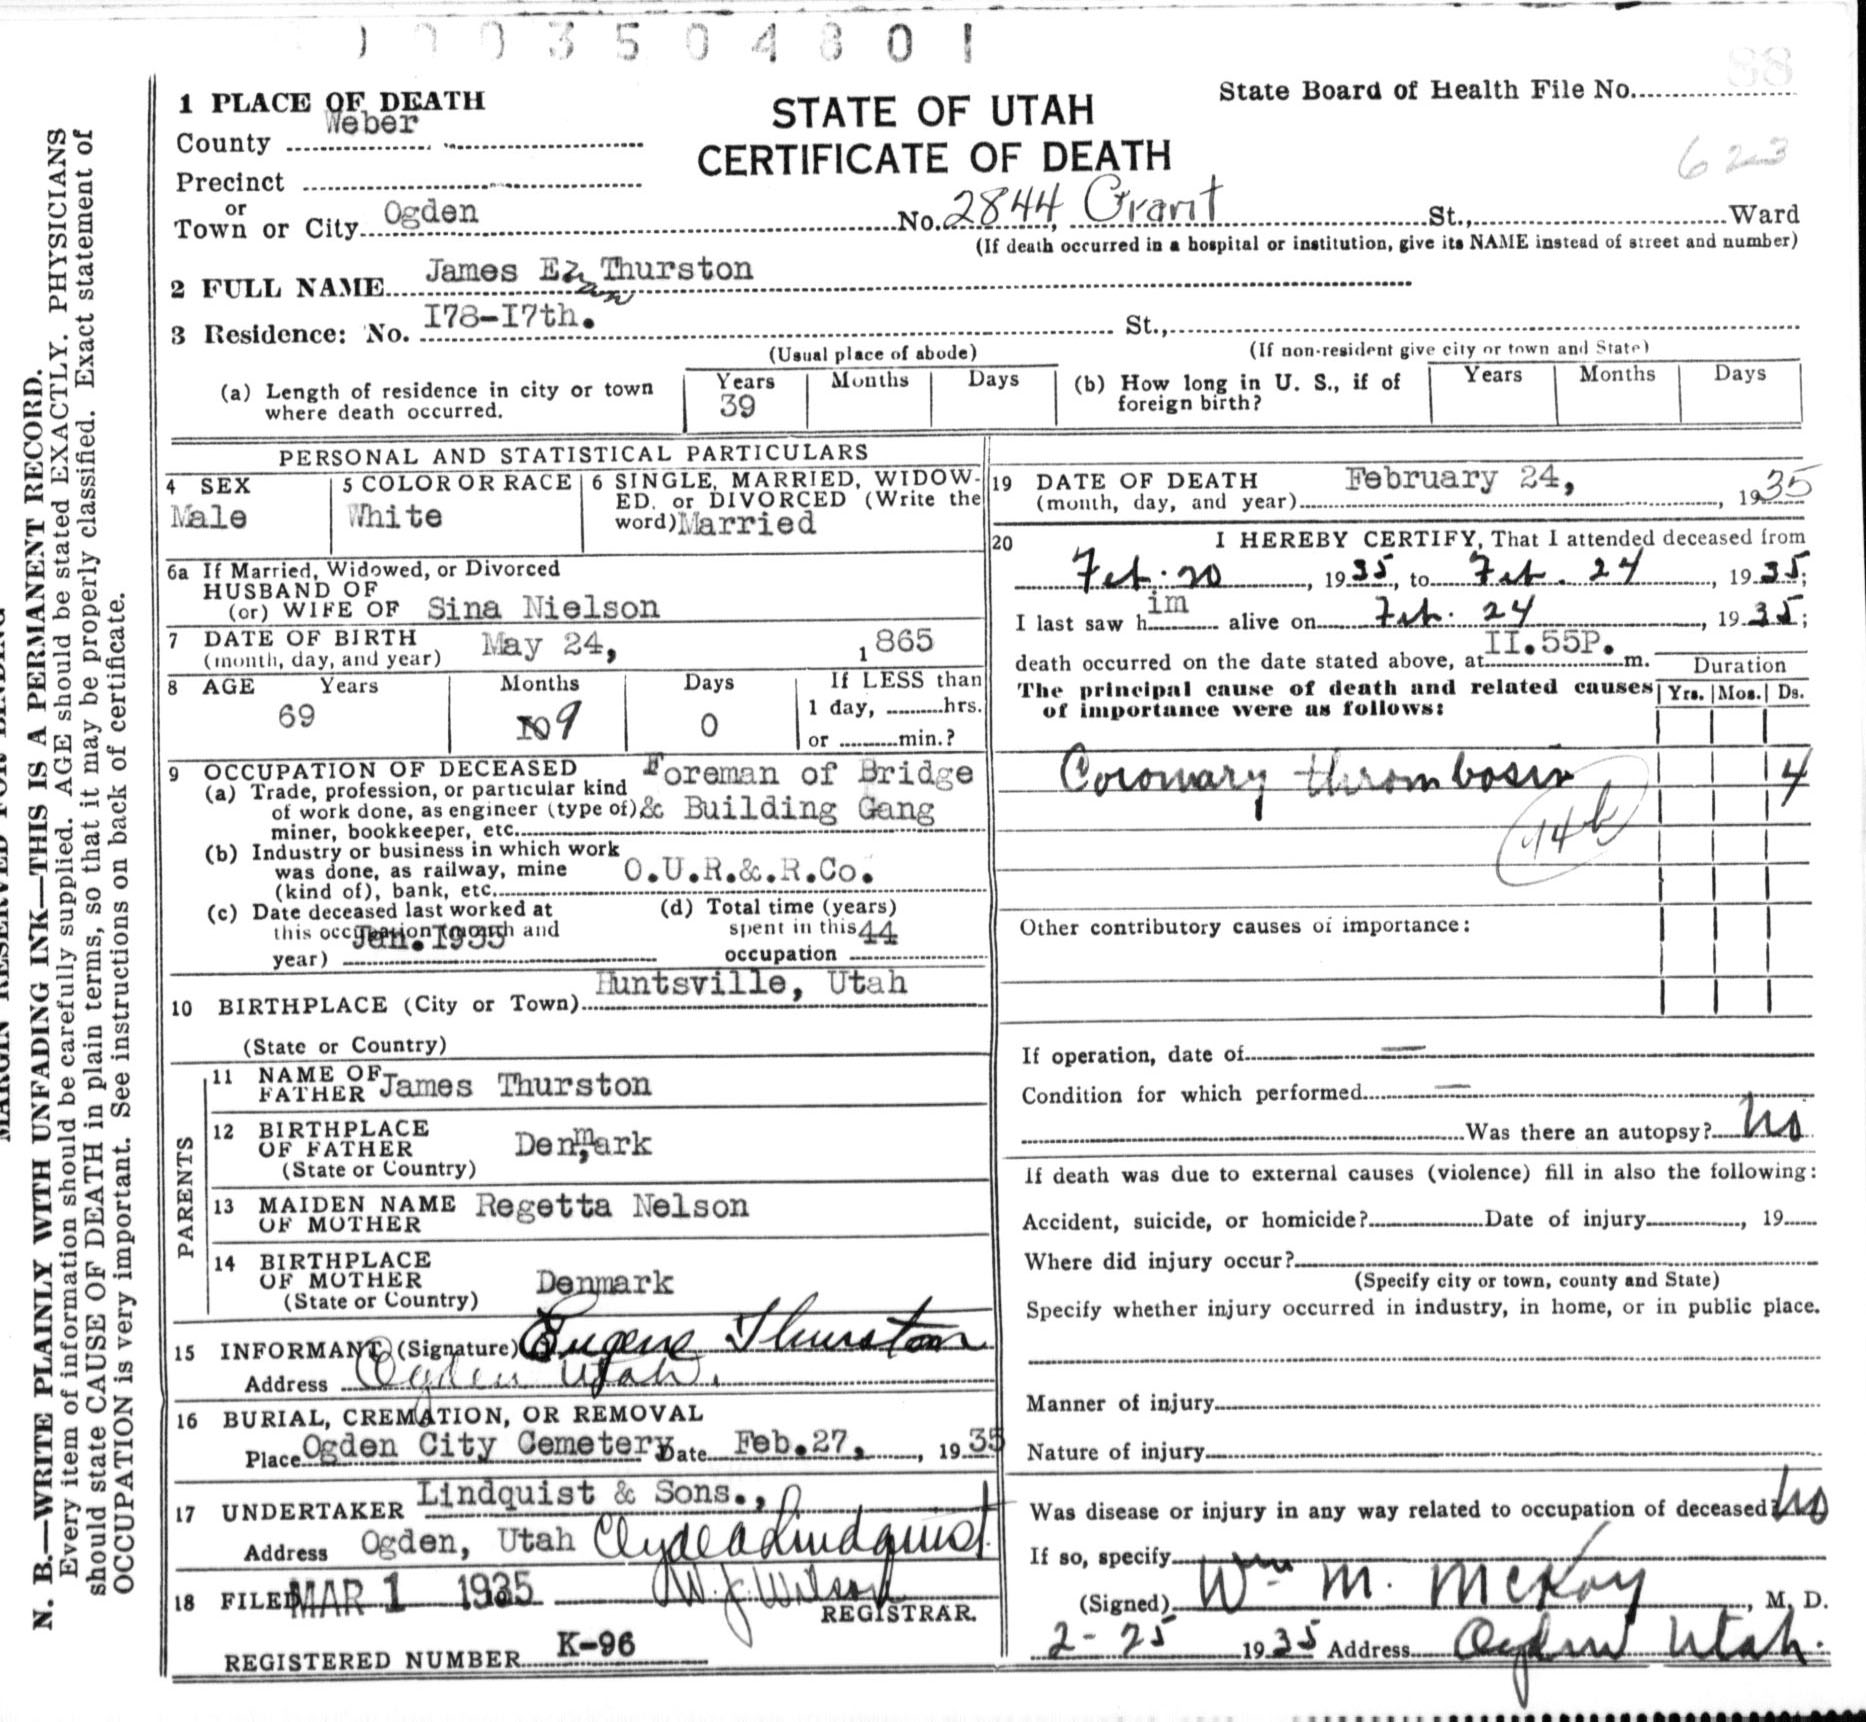 0003504801
State Board of Health File No. 88
623
STATE OF UTAH
CERTIFICATE OF DEATH
1 PLACE OF DEATH
County Weber
Precinct
or
Town or City Ogden No. 2844, Grant St., Ward
(If death occurred in a hospital or institution, give its NAME instead of street and number)
2 FULL NAME James E. Thurston
3 Residence: No. I78-I7th. St.,
(Usual place of abode) (If non-resident give city or town and State)
(a) Length of residence in city or town where death occurred. Years 39 Months Days
(b) How long in U. S., if of foreign birth? Years Months Days
PERSONAL AND STATISTICAL PARTICULARS
4 SEX Male
5 COLOR OR RACE White
6 SINGLE, MARRIED, WIDOW-
ED, or DIVORCED (Write the
word) Married
6a If Married, Widowed, or Divorced
HUSBAND OF
(or) WIFE OF Sina Nielson
7 DATE OF BIRTH May 24, 1865
(month, day, and year)
8 AGE Years 69 Months 10 9 Days 0
If LESS than
1 day, hrs.
or min.?
9 OCCUPATION OF DECEASED Foreman of Bridge
(a) Trade, profession, or particular kind
of work done, as engineer (type of) & Building Gang
miner, bookkeeper, etc.
(b) Industry or business in which work
was done, as railway, mine O.U.R.&.R.Co.
(kind of), bank, etc.
(c) Date deceased last worked at
this occupation (month and
year) Jan. I935
(d) Total time (years)
spent in this 44
occupation
10 BIRTHPLACE (City or Town) Huntsville, Utah
(State or Country)
PARENTS
11 NAME OF
FATHER James Thurston
12 BIRTHPLACE
OF FATHER Denmark
(State or Country)
13 MAIDEN NAME Regetta Nelson
OF MOTHER
14 BIRTHPLACE
OF MOTHER Denmark
(State or Country)
15 INFORMANT (Signature) Eugene Thurston
Address Ogden Utah.
16 BURIAL, CREMATION, OR REMOVAL
Place Ogden City Cemetery Date Feb.27, 1935
17 UNDERTAKER Lindquist & Sons.,
Address Ogden, Utah Clyde A Lindquist.
18 FILED MAR 1 1935 W. J. Wilson
REGISTRAR.
REGISTERED NUMBER K-96
19 DATE OF DEATH February 24, 1935
(month, day, and year)
20 I HEREBY CERTIFY, That I attended deceased from
Feb. 20, 1935, to Feb. 24, 1935;
I last saw him alive on Feb. 24, 1935;
death occurred on the date stated above, at II.55P. m.
Duration
The principal cause of death and related causes Yrs. Mos. Ds.
of importance were as follows:
Coronary thrombosis 4
94b
Other contributory causes of importance:
If operation, date of —
Condition for which performed —
Was there an autopsy? No
If death was due to external causes (violence) fill in also the following:
Accident, suicide, or homicide? Date of injury , 19
Where did injury occur?
(Specify city or town, county and State)
Specify whether injury occurred in industry, in home, or in public place.
Manner of injury
Nature of injury
Was disease or injury in any way related to occupation of deceased? No
If so, specify
(Signed) Wm M. McKay, M. D.
2-25 1935 Address Ogden Utah.
N. B.—WRITE PLAINLY WITH UNFADING INK—THIS IS A PERMANENT RECORD.
Every item of information should be carefully supplied. AGE should be stated EXACTLY. PHYSICIANS
should state CAUSE OF DEATH in plain terms, so that it may be properly classified. Exact statement of
OCCUPATION is very important. See instructions on back of certificate.